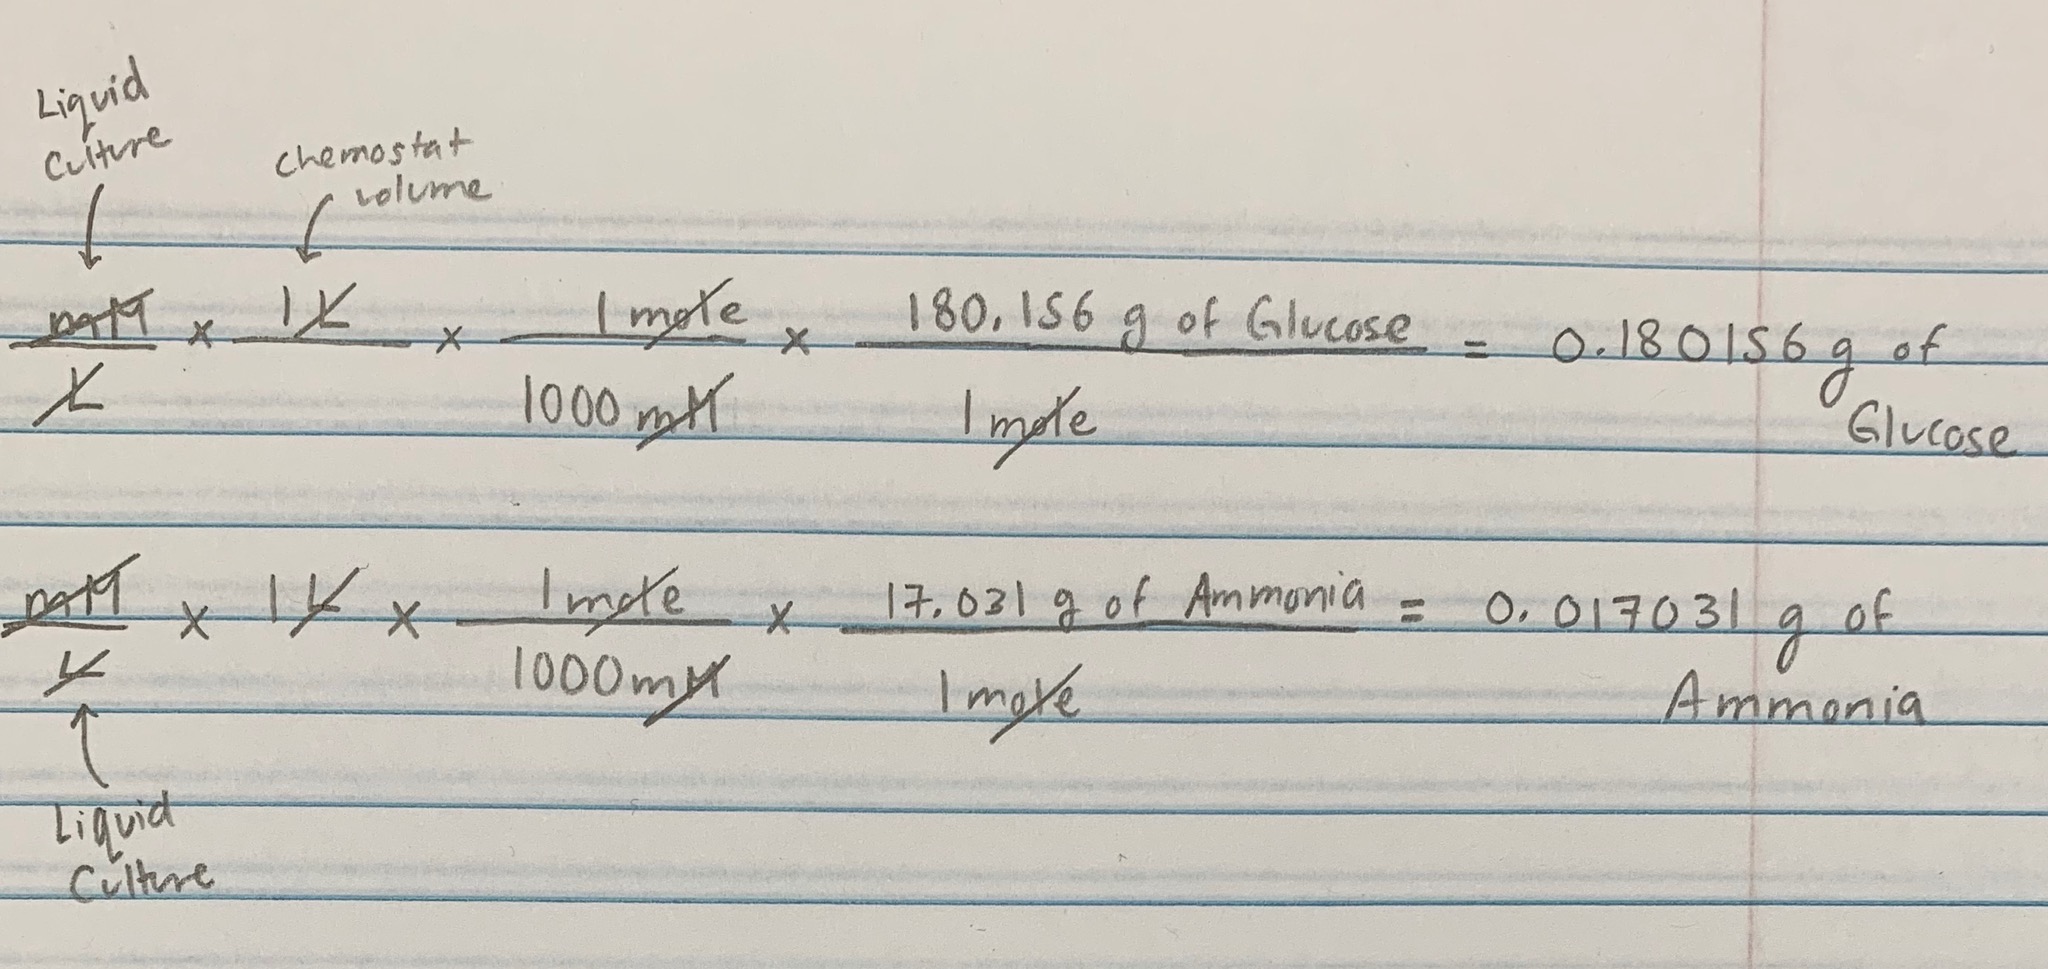 Liquid
Culture
Chemostat
volume
mM/L × 1 L × 1 mole/1000 mM × 180.156 g of Glucose/1 mole = 0.180156 g of
Glucose
mM/L × 1 L × 1 mole/1000 mM × 17.031 g of Ammonia/1 mole = 0.017031 g of
Ammonia
Liquid
Culture